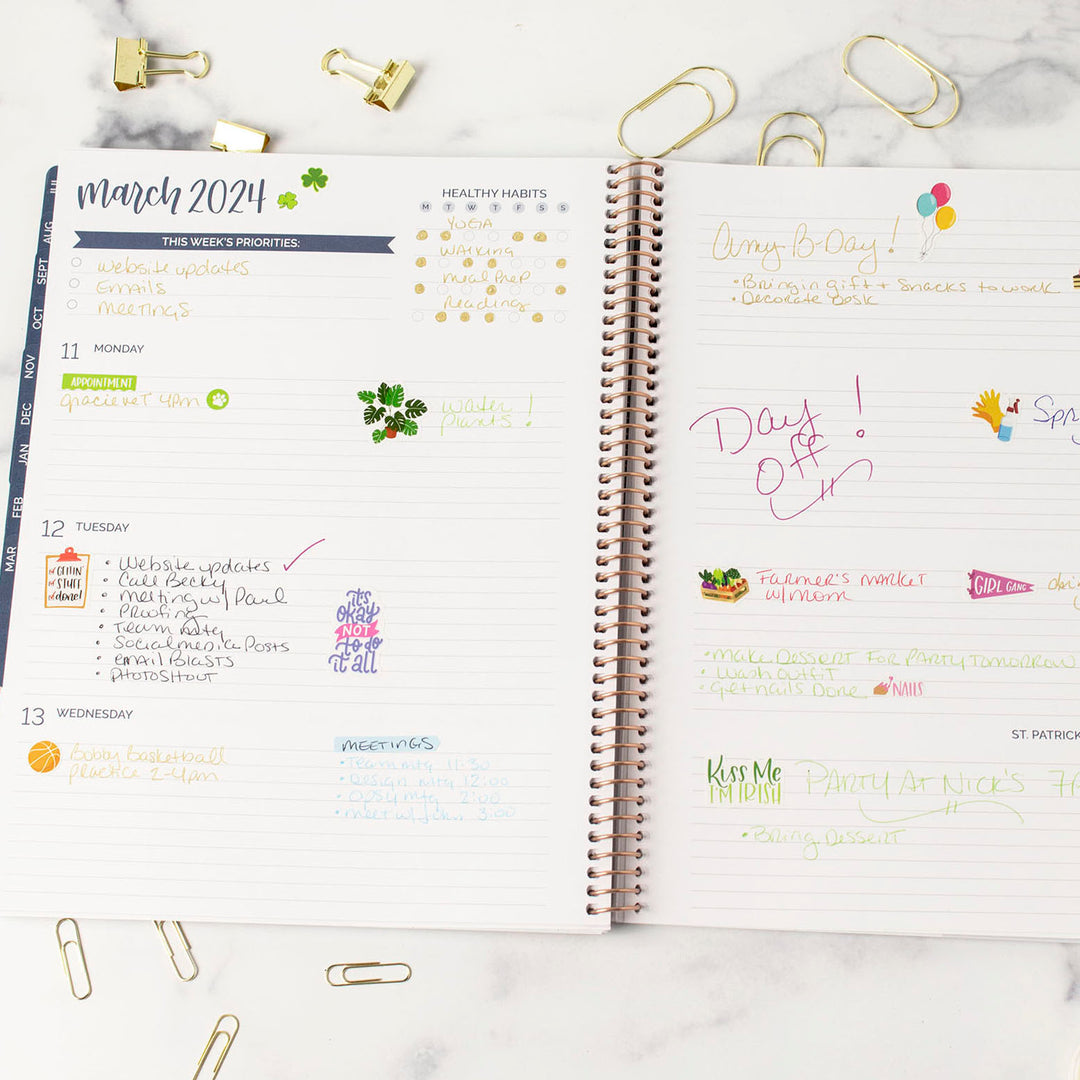 JUL
AUG
SEPT
OCT
NOV
DEC
JAN
FEB
MAR
march 2024
THIS WEEK'S PRIORITIES:
website updates
Emails
meetings
HEALTHY HABITS
M T W T F S S
YOGA
WALKING
meal Prep
Reading
11 MONDAY
APPOINTMENT
gracie vet 4pm
water
plants!
12 TUESDAY
GETTIN'
STUFF
done!
• Website updates
• Call Becky
• meeting w/ Paul
• Proofing
• Team mtg
• Social media Posts
• email Blasts
• PHOTOSHOUT
it's
okay
NOT
to do
it all
13 WEDNESDAY
Bobby Basketball
practice 2-4pm
MEETINGS
• Team mtg 11:30
• Design mtg 12:00
• Opsy mtg 2:00
• meet w/ 3:00
Amy B-Day!
• Bring in gift + snacks to work
• Decorate Desk
Day
Off!
Spr
Farmer's market
w/ mom
GIRL GANG
• Make Dessert for party tomorrow
• Wash outfit
• Get nails Done
NAILS
ST. PATRICK
Kiss Me
I'M IRISH
Party At Nick's 7
• Bring Dessert